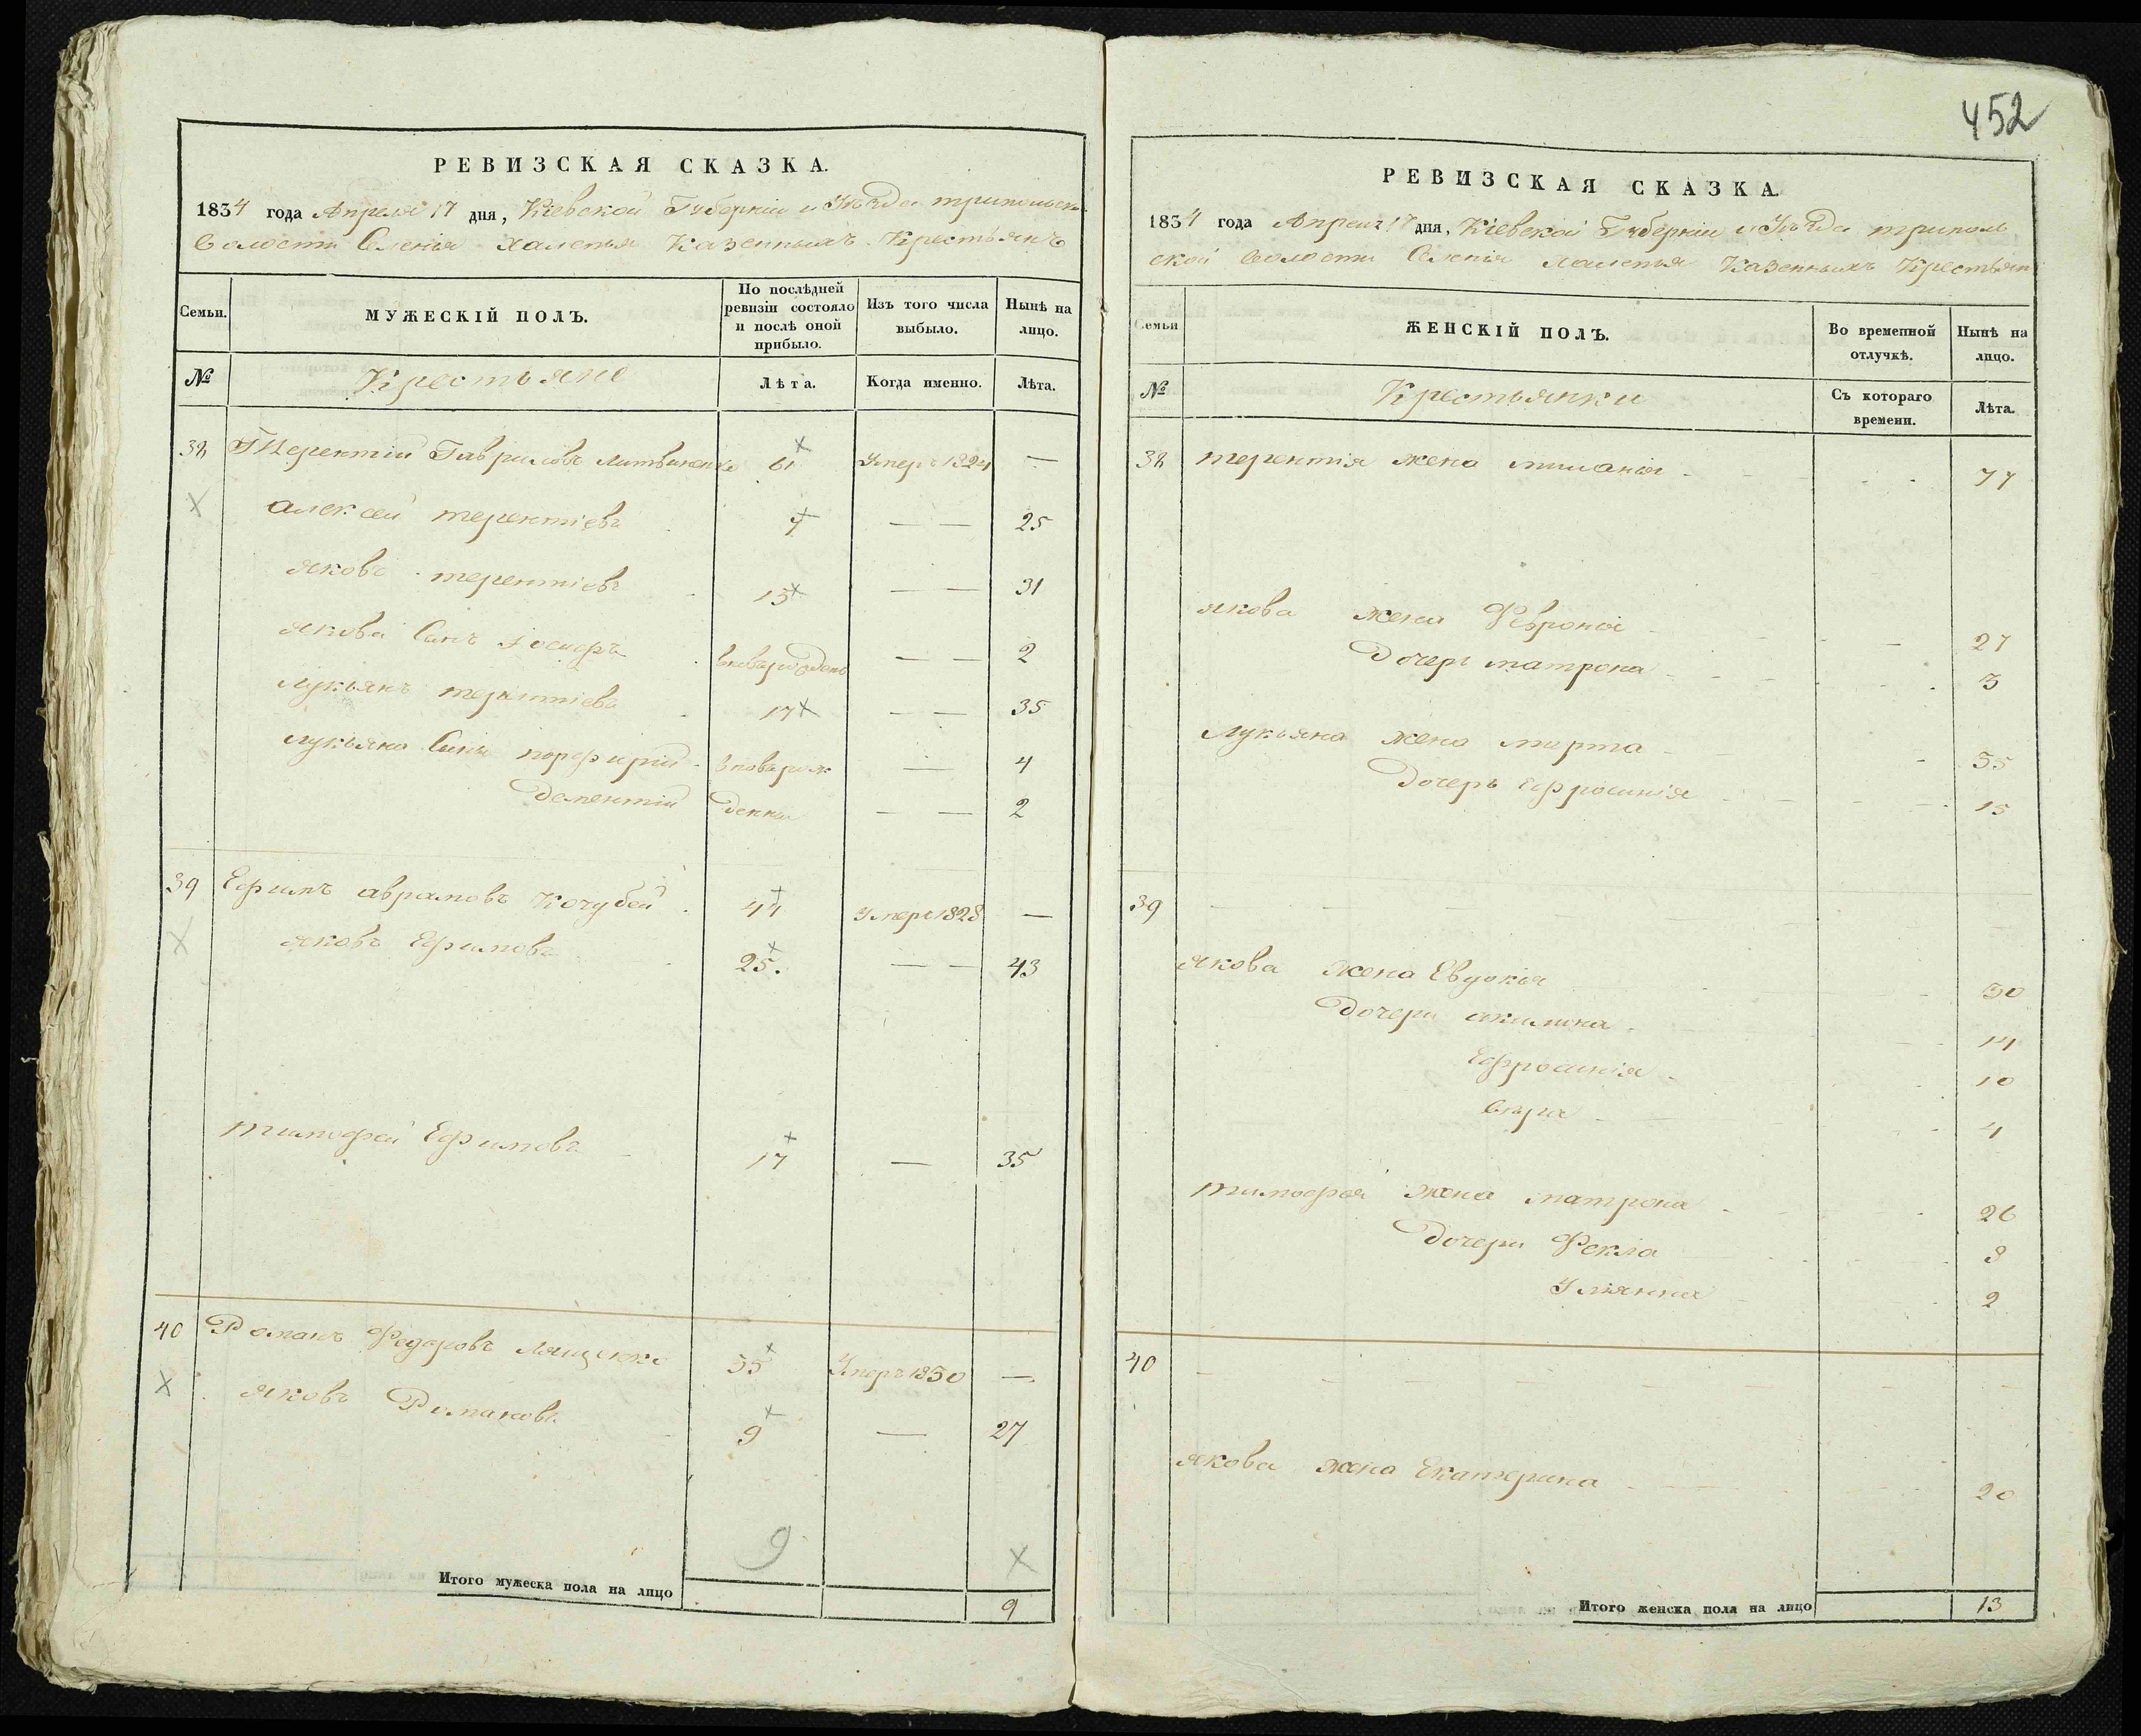 452
РЕВИЗСКАЯ СКАЗКА.
1834 года Апреля 17 дня, Кіевской Губерніи и Уѣзда трипольск
Волости Селенія халепья Казенныхъ Крестьянъ
Семьи. МУЖЕСКІЙ ПОЛЪ. По послѣдней ревизіи состояло и послѣ оной прибыло. Изъ того числа выбыло. Нынѣ на лицо.
№ Крестьяне Лѣта. Когда именно. Лѣта.
38 Терентій Гавриловъ Литвиненко 61 Умеръ 1824 —
алексей терентіевъ 7 — — 25
яковъ терентіевъ 13 — — 31
якова Сынъ Іосифъ вновьрожденъ — — 2
лукьянъ терентіевъ 17 — — 35
лукьяна Сины порфирій вноврож — 4
дементій денни — — 2
39 Ефимъ аврамовъ Кочубей 44 Умеръ 1828 —
яковъ Ефимовъ 25. — — 43
тимофей Ефимовъ 17 — 35
40 Романъ Федоровъ 55 Умеръ 1830 —
яковъ Романовъ 9 — 27
9
Итого мужеска пола на лицо 9
РЕВИЗСКАЯ СКАЗКА.
1834 года Апреля 17 дня, Кіевской Губерніи и Уѣзда триполь
ской волости Селенія халепья Казенныхъ Крестьян
Семьи ЖЕНСКІЙ ПОЛЪ. Во временной отлучкѣ. Нынѣ на лицо.
№ Крестьянки Съ котораго времени. Лѣта.
38 терентія жена миланія 77
якова жена Февронія — 27
Дочерь матрона 3
Лукьяна жена марта 35
Дочерь Ефросинія 15
39 — — —
якова жена Евдокія 30
Дочери акилина 14
Ефросинія 10
вѣра 4
тимофея жена матрона 26
Дочери Фекла 8
Уліянна 2
40 — — — — — — —
якова жена Екатерина 20
Итого женска пола на лицо 13